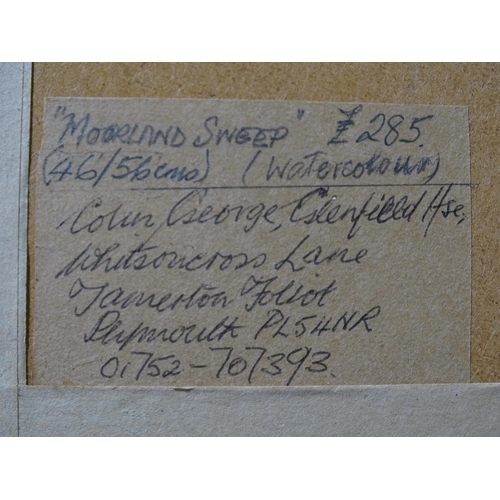 "MOORLAND SWEEP" £285.
(46/56cms) (Watercolour)
Colin George, Glenfield Hse,
Whitsoncross Lane
Tamerton Foliot
Plymouth PL54NR
01752-707393.